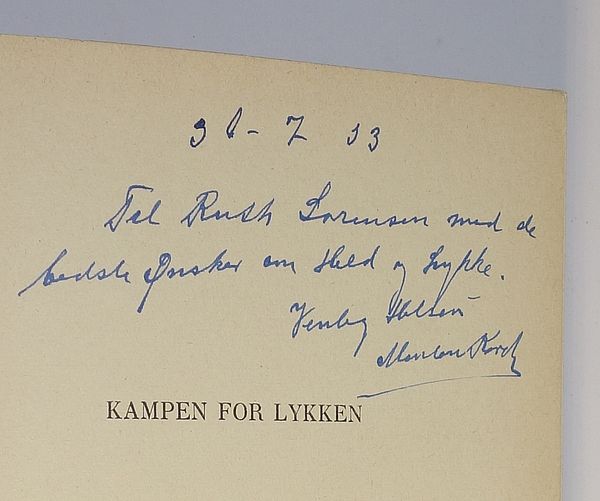 31 - 7 33
Til Ruth Sorensen med de
bedste Ønsker om Held og Lykke.
Venlig Hilsen
Morten Korch
KAMPEN FOR LYKKEN